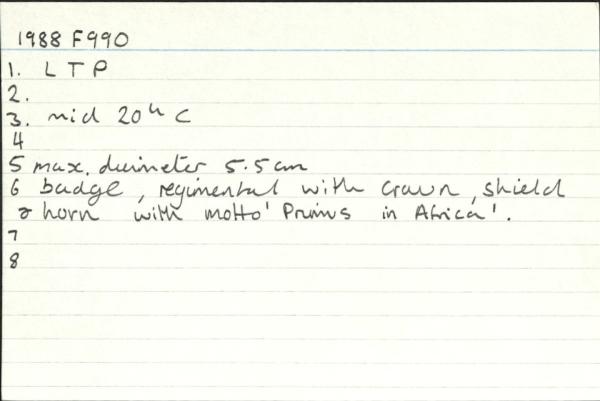 1988 F990
1. L T P
2.
3. mid 20th C
4
5 max. diameter 5.5cm
6 badge, regimental with crown, shield
& horn with motto 'Primus in Africa'.
7
8